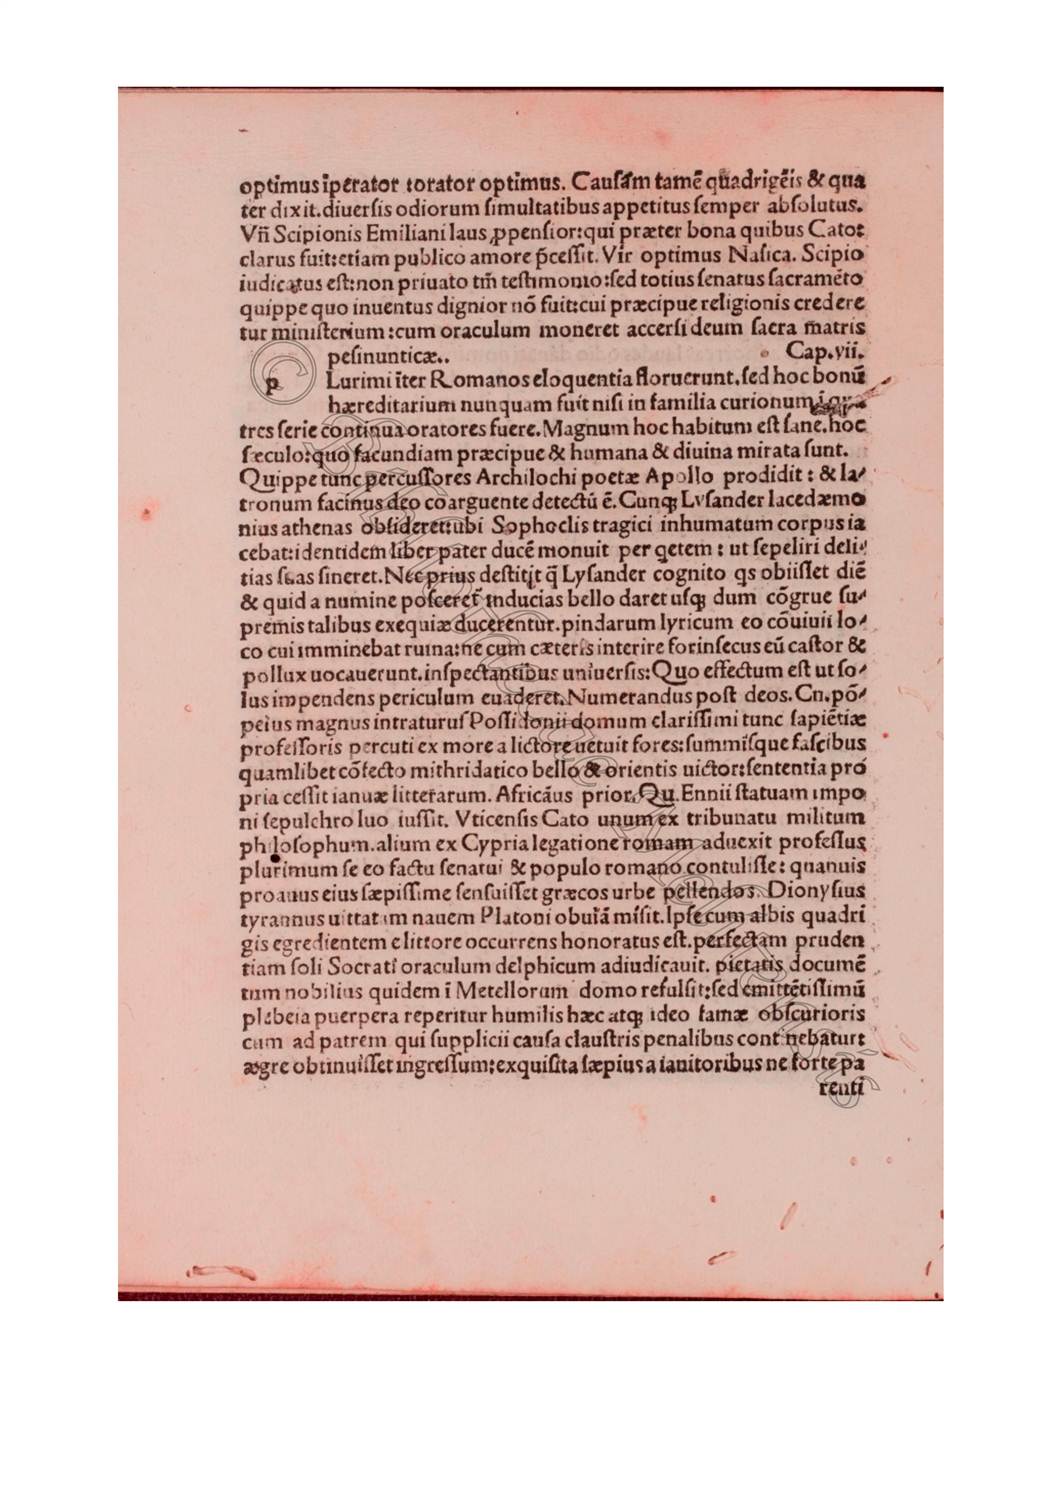 optimus ipērator ꝛorator optimus. Cauſam tamē quadrigēis & qua
ter dixit. diuerſis odiorum ſimultatibus appetitus ſemper abſolutus.
Vñ Scipionis Emiliani laus ꝓpenſior: qui præter bona quibus Catoꝛ
clarus fuit: etiam publico amore p̄ceſſit. Vir optimus Naſica. Scipio
iudicatus eſt: non priuato tm̄ teſtimonio: ſed totius ſenatus ſacramēto
quippe quo inuentus dignior nō fuit: cui præcipue religionis credere
tur miniſterium: cum oraculum moneret accerſi deum ſacra matris
peſinunticæ.. Cap. vii.
p Lurimi īter Romanos eloquentia floruerunt. ſed hoc bonū
hæreditarium nunquam fuit niſi in familia curionum
tres ſerie continua oratores fuere. Magnum hoc habitum eſt ſane. hoc
ſæculo: quo facundiam præcipue & humana & diuina mirata ſunt.
Quippe tunc percuſſores Archilochi poetæ Apollo prodidit: & la⸗
tronum facinus deo coarguente detectū ē. Cunqꝫ Lyſander lacedæmo
nius athenas obſideret: ubi Sophoclis tragici inhumatum corpus ia
cebat: identidem liber pater ducē monuit per q̇etem: ut ſepeliri deli⸗
tias ſuas ſineret. Nec prius deſtitit q̄ Lyſander cognito qs obiiſſet diē
& quid a numine poſceret̄ inducias bello daret uſqꝫ dum cōgrue ſu⸗
premis talibus exequiæ ducerentur. pindarum lyricum eo cōuiuii lo⸗
co cui imminebat ruina: ne cum cæteris interire forinſecus eū caſtor &
pollux uocauerunt. inſpectantibus uniuerſis: Quo effectum eſt ut ſo⸗
lus impendens periculum euaderet. Numerandus poſt deos. Cn. pō⸗
peius magnus intraturuſ Poſſidonii domum clariſſimi tunc ſapiētiæ
profeſſoris percuti ex more a lictore uetuit fores: ſummiſque faſcibus
quamlibet cōfecto mithridatico bello & orientis uictor: ſententia pro
pria ceſſit ianuæ litterarum. Africāus prior. Qu. Ennii ſtatuam impo
ni ſepulchro ſuo iuſſit. Vticenſis Cato unum ex tribunatu militum
philoſophum. alium ex Cypria legatione romam aduexit profeſſus
plurimum ſe eo factu ſenatui & populo romano contuliſſe: quanuis
proauus eius ſæpiſſime ſenſuiſſet græcos urbe pellendos. Dionyſius
tyrannus uittatam nauem Platoni obuiā miſit. Ipſe cum albis quadri
gis egredientem e littore occurrens honoratus eſt. perfectam pruden
tiam ſoli Socrati oraculum delphicum adiudicauit. pietatis documē
tum nobilius quidem ī Metellorum domo refulſit: ſed emittētiſſimū
plebeia puerpera reperitur humilis hæc atqꝫ ideo famæ obſcurioris
cum ad patrem qui ſupplicii cauſa clauſtris penalibus continebaturꝛ
ægre obtinuiſſet ingreſſum: exquiſita ſæpius a ianitoribus ne forte pa
renti